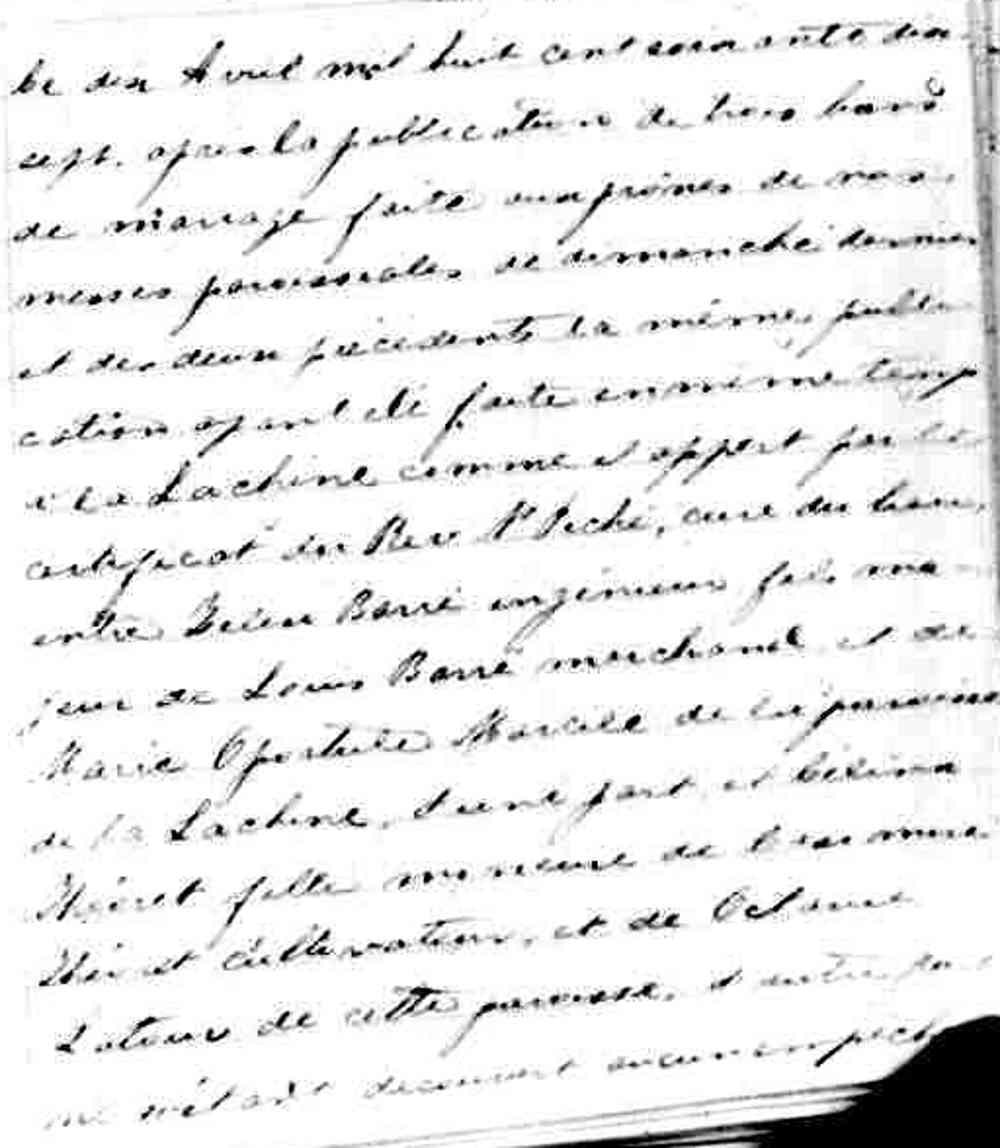 Le dix Avril mil huit cent soixante dix
sept, après la publication de trois bans
de mariage faite aux prônes de nos
messes paroissiales de dimanche dernier
et des deux précédents la même publi
cation ayant été faite en même temp
à la Lachine comme il appert par le
certificat du Rev Mr Piché, curé du lieu,
entre Barré ingénieur fils ma
jeur de Louis Barré marchand et de
Marie Opportule Marcile de la paroisse
de la Lachine, d'une part, et
fille mineure de
cultivateur, et de Octavie
Latour de cette paroisse, d'autre part
ne s'étant découvert aucun empêch